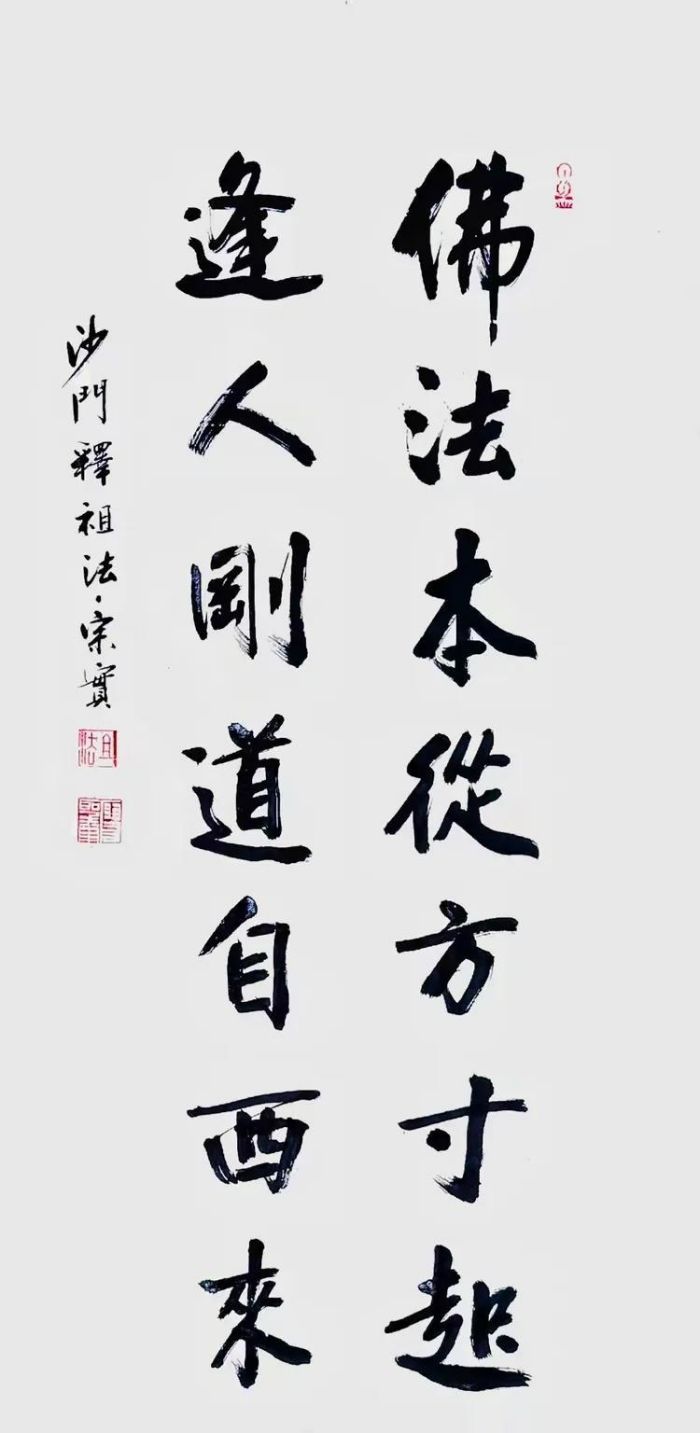 佛法本從方寸起
逢人剛道自西來
沙門釋祖法·宗實